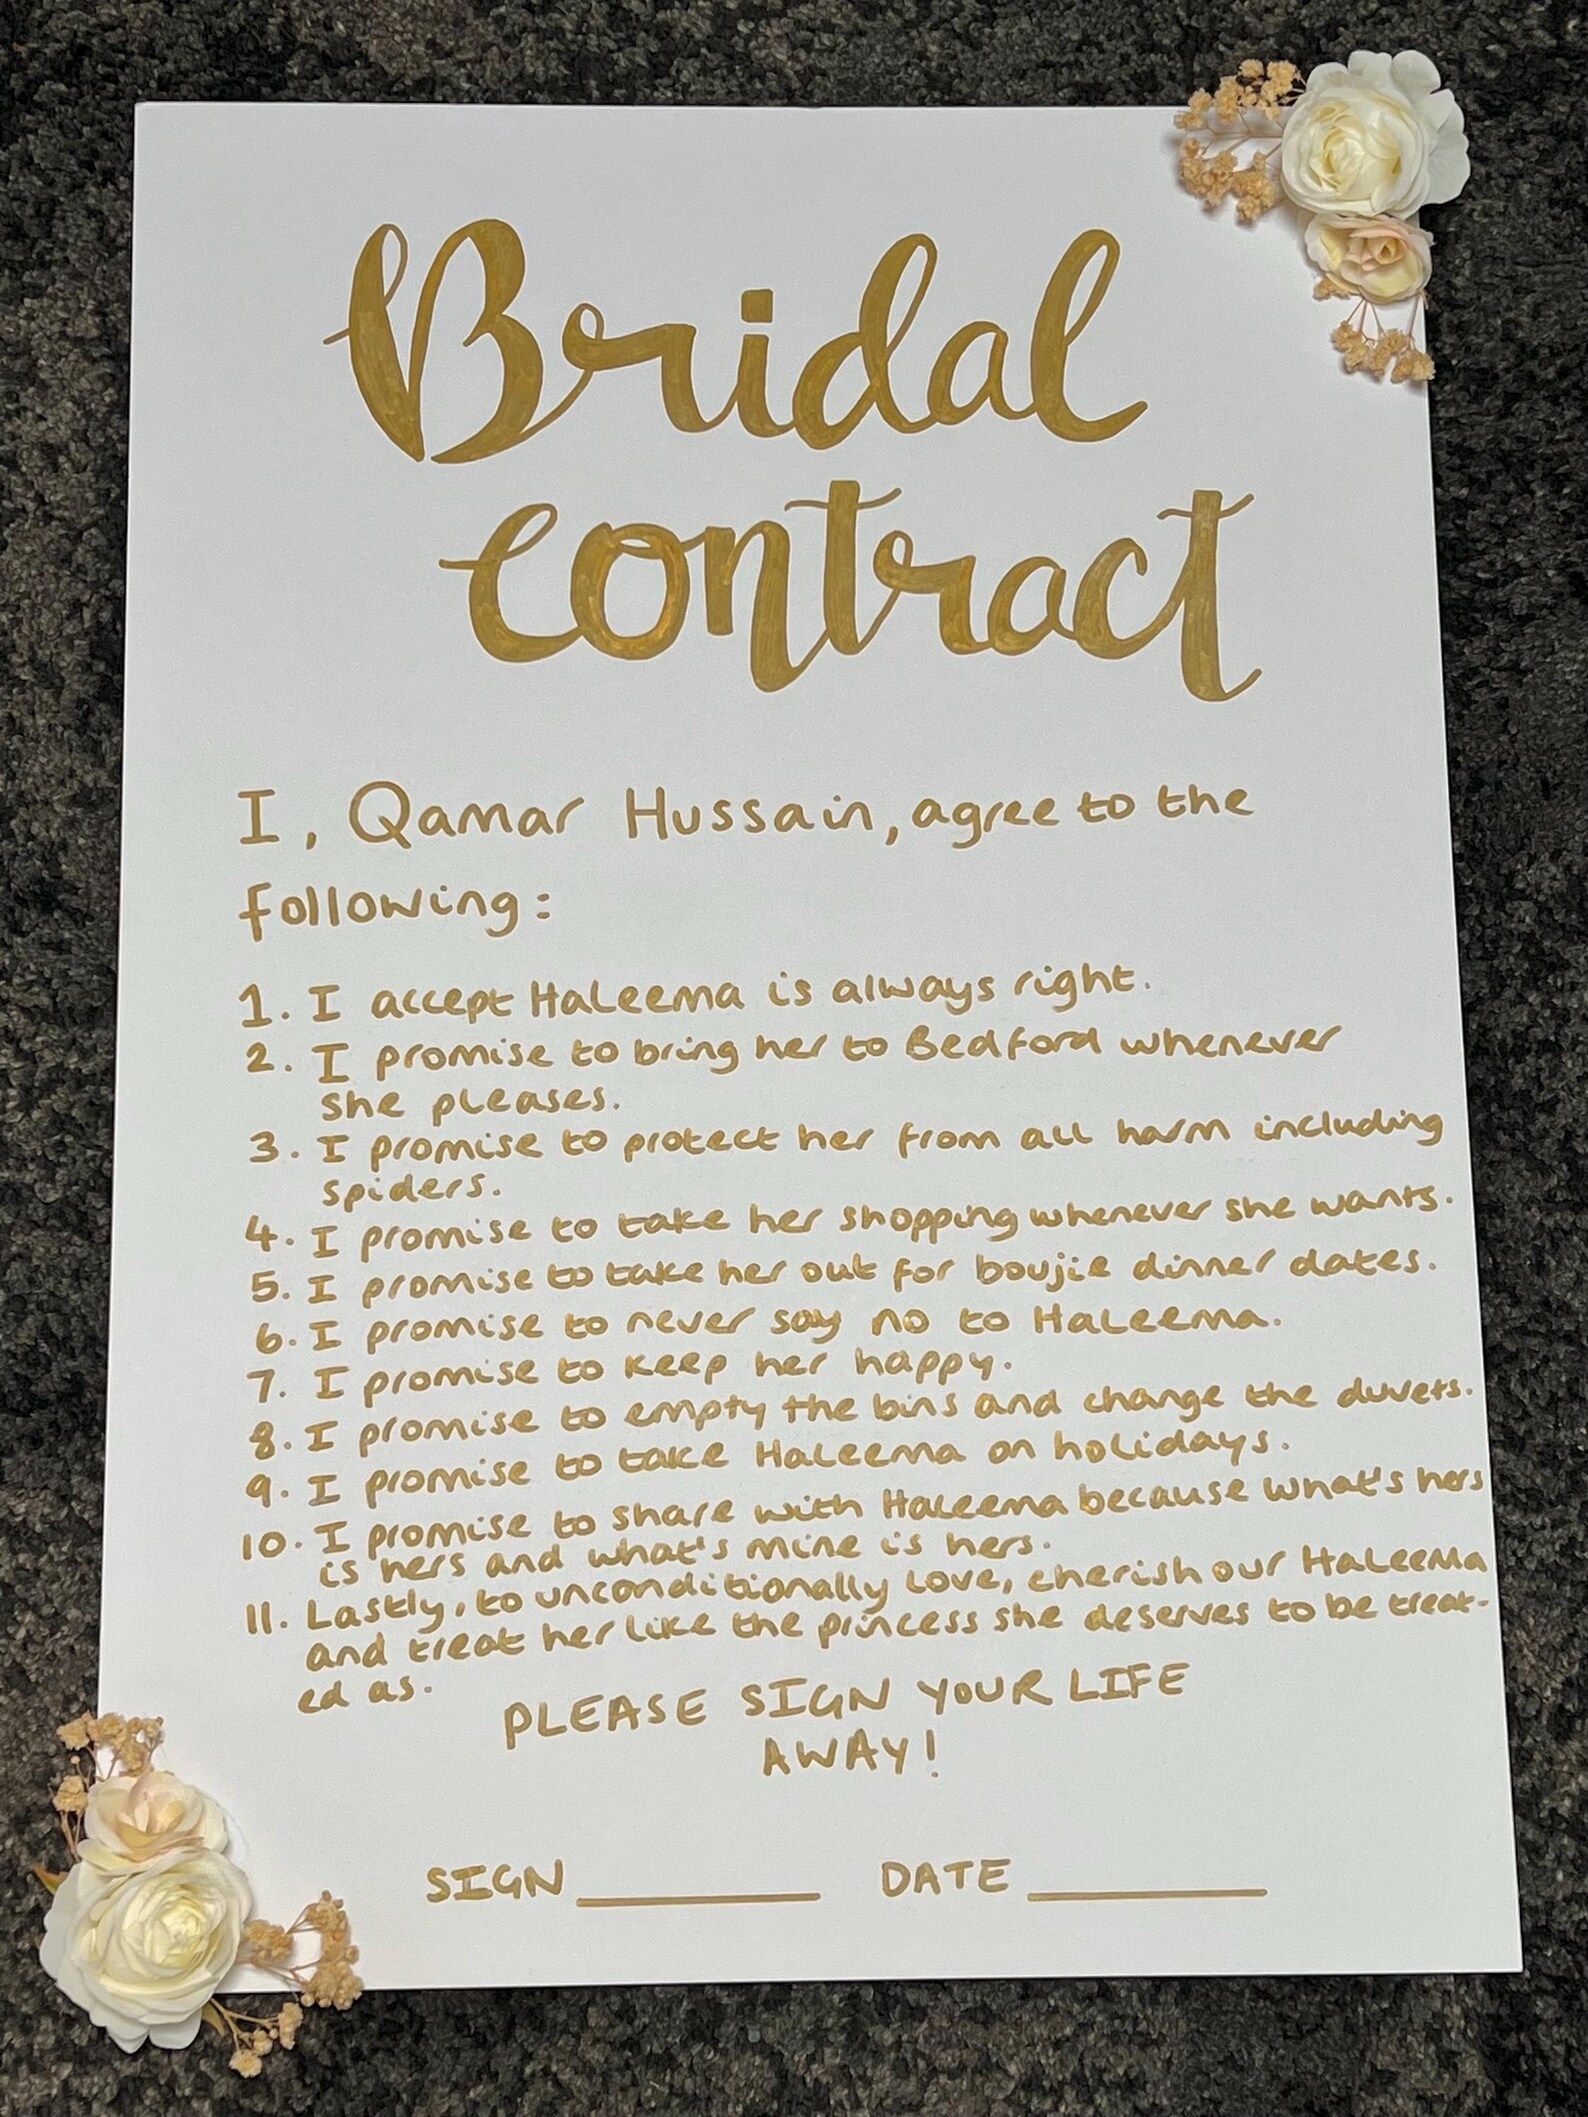 Bridal
contract
I, Qamar Hussain, agree to the
following:
1. I accept Haleema is always right.
2. I promise to bring her to Bedford whenever
she pleases.
3. I promise to protect her from all harm including
spiders.
4. I promise to take her shopping whenever she wants.
5. I promise to take her out for boujie dinner dates.
6. I promise to never say no to Haleema.
7. I promise to keep her happy.
8. I promise to empty the bins and change the duvets.
9. I promise to take Haleema on holidays.
10. I promise to share with Haleema because what's hers
is hers and what's mine is hers.
11. Lastly, to unconditionally love, cherish our Haleema
and treat her like the princess she deserves to be treat-
ed as.
PLEASE SIGN YOUR LIFE
AWAY!
SIGN DATE